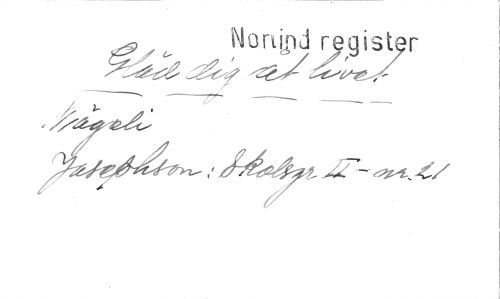 Norlind register
Gläd dig åt livet
Nägeli
Josephson: Skolsgr II - nr. 21